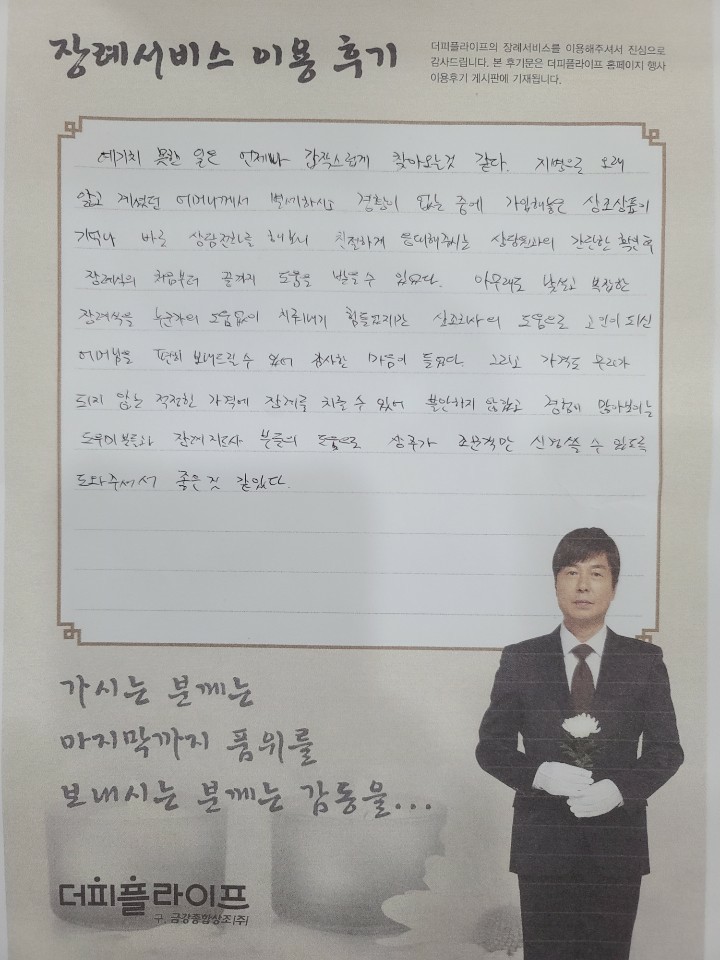 장례서비스 이용 후기
더피플라이프의 장례서비스를 이용해주셔서 진심으로
감사드립니다. 본 후기문은 더피플라이프 홈페이지 행사
이용후기 게시판에 기재됩니다.
예기치 못한 일은 언제나 갑작스럽게 찾아오는것 같다. 지병으로 오래
앓고 계셨던 어머니께서 별세하시고 경황이 없는 중에 가입해놓은 상조상품이
기억나 바로 상담전화를 해보니 친절하게 응대해주시는 상담원과의 간단한 확인 후
장례식의 처음부터 끝까지 도움을 받을 수 있었다. 아무래도 낯설고 복잡한
장례식을 누군가의 도움없이 치뤄내기 힘들었겠지만 상조회사의 도움으로 고인이 되신
어머님을 편히 보내드릴 수 있어 감사한 마음이 들었다. 그리고 가격도 무리가
되지 않는 적정한 가격에 장례를 치를 수 있어 불안하지 않았고 경험이 많아보이는
도우미분들과 장례지도사 분들의 도움으로 상주가 조문객만 신경쓸 수 있도록
도와주셔서 좋은것 같았다.
가시는 분께는
마지막까지 품위를
보내시는 분께는 감동을...
더피플라이프
구. 금강종합상조(주)